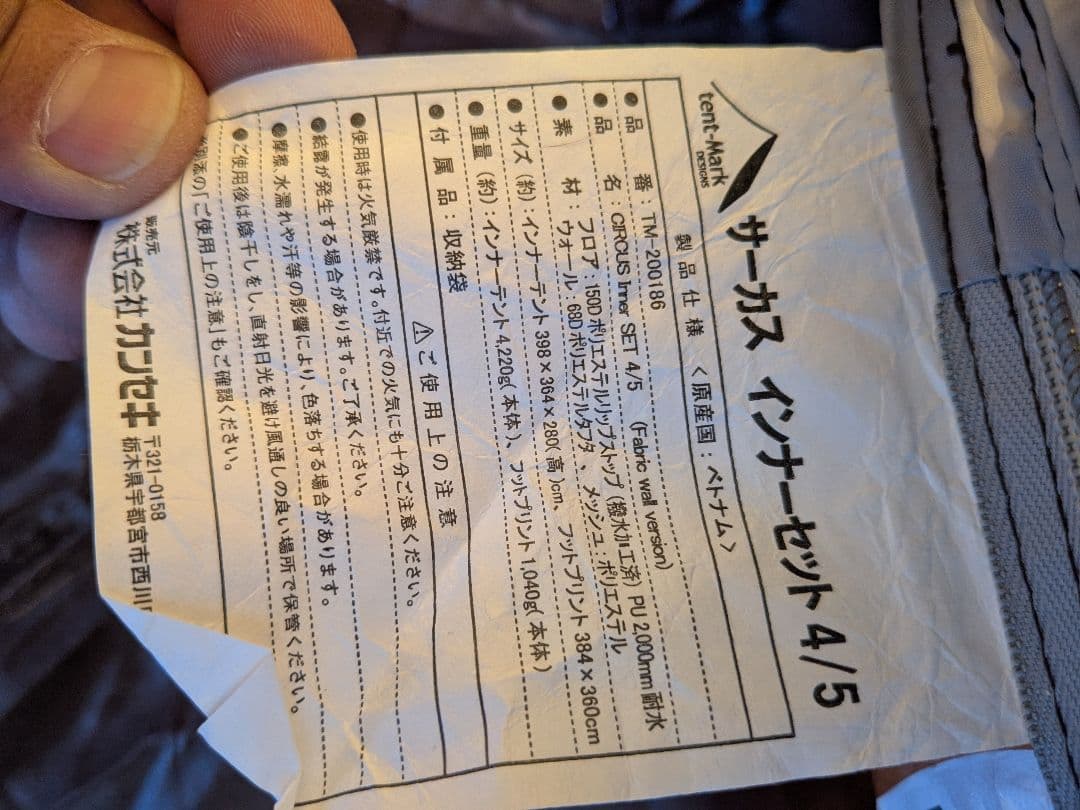 tent-Mark
DESIGNS
サーカス インナーセット 4/5
製品仕様 〈原産国：ベトナム〉
●品 番：TM-200186
●品 名：CIRCUS Inner SET 4/5 (Fabric wall version)
●素 材：フロア：150Dポリエステルリップストップ(撥水加工済) PU 2,000mm 耐水
ウォール：68Dポリエステルタフタ、メッシュ：ポリエステル
●サイズ(約)：インナーテント 398×364×280(高)cm、フットプリント 384×360cm
●重量(約)：インナーテント4,220g(本体)、フットプリント1,040g(本体)
●付属品：収納袋
⚠ご使用上の注意
●使用時は火気厳禁です。付近での火気にも十分ご注意ください。
●結露が発生する場合があります。ご了承ください。
●摩擦、水濡れや汗等の影響により、色落ちする場合があります。
●ご使用後は陰干しをし、直射日光を避け風通しの良い場所で保管ください。
「ご使用上の注意」もご確認ください。
販売元
株式会社カンセキ 〒321-0158
栃木県宇都宮市西川